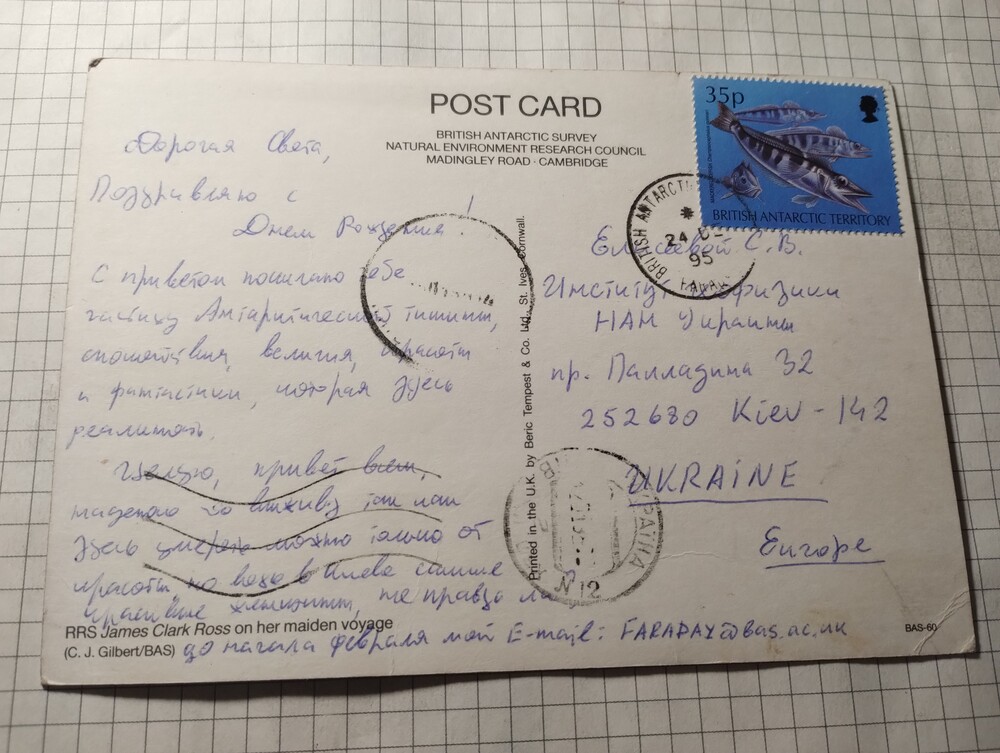 POST CARD
BRITISH ANTARCTIC SURVEY
NATURAL ENVIRONMENT RESEARCH COUNCIL
MADINGLEY ROAD · CAMBRIDGE
35p
BRITISH ANTARCTIC TERRITORY
BRITISH ANTARCTIC
24
95
Дорогая Света,
Поздравляю с
Днем Рождения!
С приветом посылаю тебе
частицу Антарктической тишины,
спокойствия, величия, красоты
и фантастики, которая здесь
реальность.
Целую, привет всем,
надеюсь
здесь умереть можно только от
красоты, но ведь в Киеве
женщины, не правда ли
до начала февраля мой E-mail: FARADAY@bas.ac.uk
Printed in the U.K. by Beric Tempest & Co. Ltd., St. Ives, Cornwall.
Елисеевой С.В.
Институт Геофизики
НАН Украины
пр. Палладина 32
252680 Kiev - 142
UKRAINE
Europe
N 12
RRS James Clark Ross on her maiden voyage
(C. J. Gilbert/BAS)
BAS-60